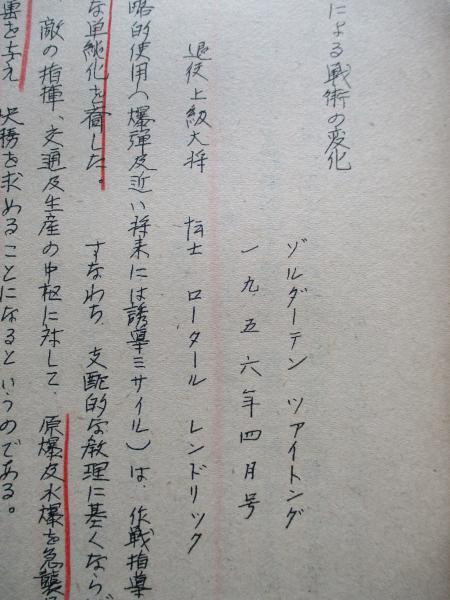 による戦術の変化
ゾルダーテン ツアイトング
一九五六年四月号
退役上級大将 伯士 ロータール レンドリック
略的使用（爆弾及近い将来には誘導ミサイル）は、作戦指導
な単純化を齎した。 すなわち、支配的な教理に基くならば
、敵の指揮、交通及生産の中枢に対して、原爆及水爆を急襲
を与え 決勝を求めることになるというのである。